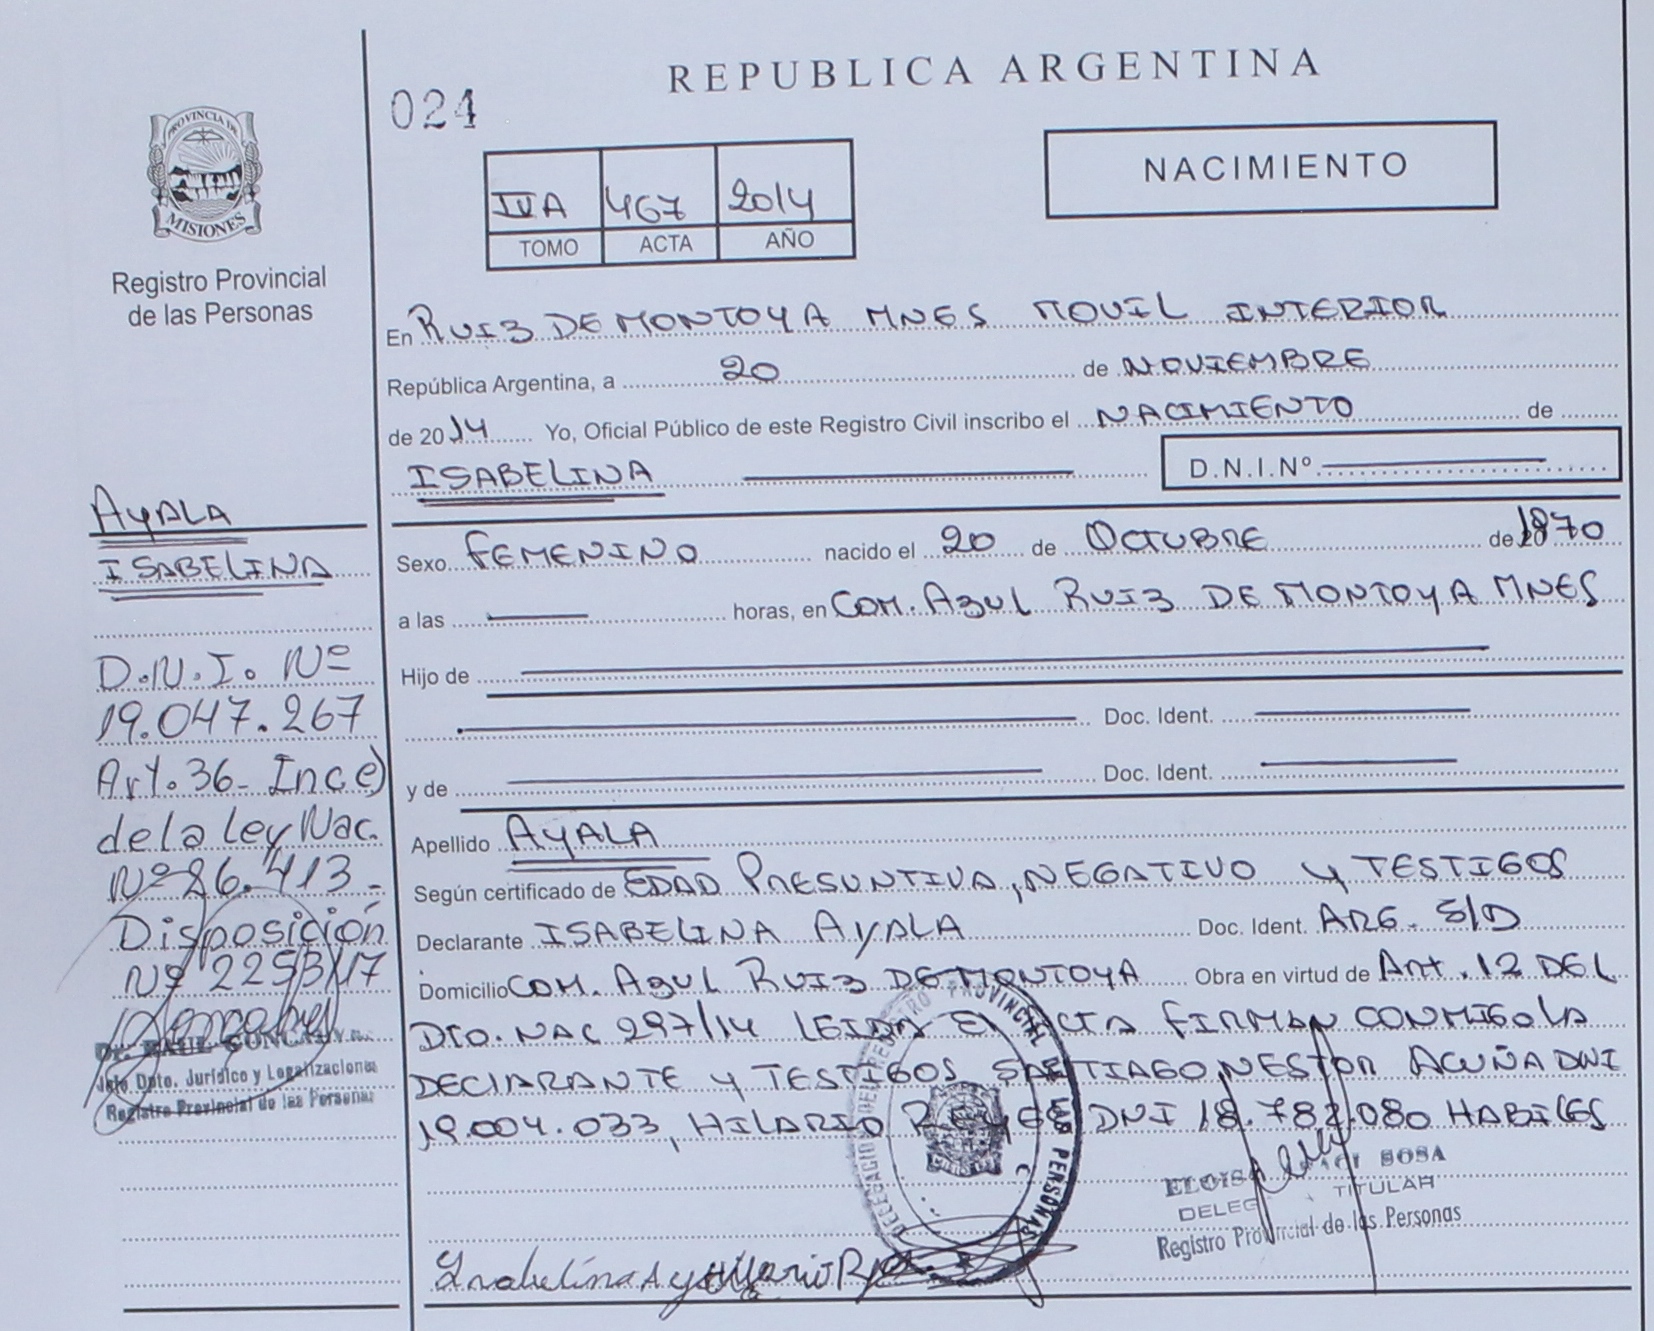 PROVINCIA DE
MISIONES
Registro Provincial
de las Personas
AYALA
ISABELINA
D.N.I. Nº
19.047.267
Art. 36- Inc e)
de la ley Nac.
Nº 26.413-
Disposición
Nº 2253/17
Dr. RAUL
Jefe Dpto. Jurídico y Legalizaciones
Registro Provincial de las Personas
024
REPUBLICA ARGENTINA
NACIMIENTO
IVA 467 2014
TOMO ACTA AÑO
En RUIZ DE MONTOYA MNES MOVIL INTERIOR
República Argentina, a 20 de NOVIEMBRE
de 2014 Yo, Oficial Público de este Registro Civil inscribo el NACIMIENTO de
ISABELINA D.N.I.Nº
Sexo FEMENINO nacido el 20 de OCTUBRE de 1870
a las horas, en COM. AZUL RUIZ DE MONTOYA MNES
Hijo de
Doc. Ident.
y de Doc. Ident.
Apellido AYALA
Según certificado de EDAD PRESUNTIVA, NEGATIVO Y TESTIGOS
Declarante ISABELINA AYALA Doc. Ident. ARG. S/D
Domicilio COM. AZUL RUIZ DE MONTOYA Obra en virtud de Art. 12 DEL
DTO. NAC 297/14 LEIDA EL ACTA FIRMAN CONMIGO LA
DECLARANTE Y TESTIGOS SANTIAGO NESTOR ACUÑA DNI
19.004.033, HILARIO REYES DNI 18.782.080 HABILES
ELOISA SOSA
TITULAR
Registro Provincial de las Personas
Isabelina Ay Hilario